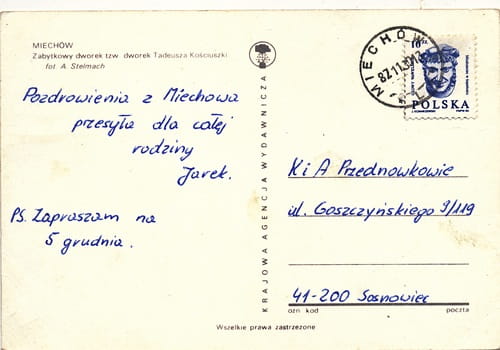 MIECHÓW
Zabytkowy dworek tzw. dworek Tadeusza Kościuszki
fot A. Stelmach
Pozdrowienia z Miechowa
przesyła dla całej
rodziny
Jarek.
PS. Zapraszam na
5 grudnia.
KRAJOWA AGENCJA WYDAWNICZA
MIECHÓW
10 zł
POLSKA
K i A Przednowkowie
ul. Goszczyńskiego 9/119
41-200 Sosnowiec
ozn kod
poczta
Wszelkie prawa zastrzeżone